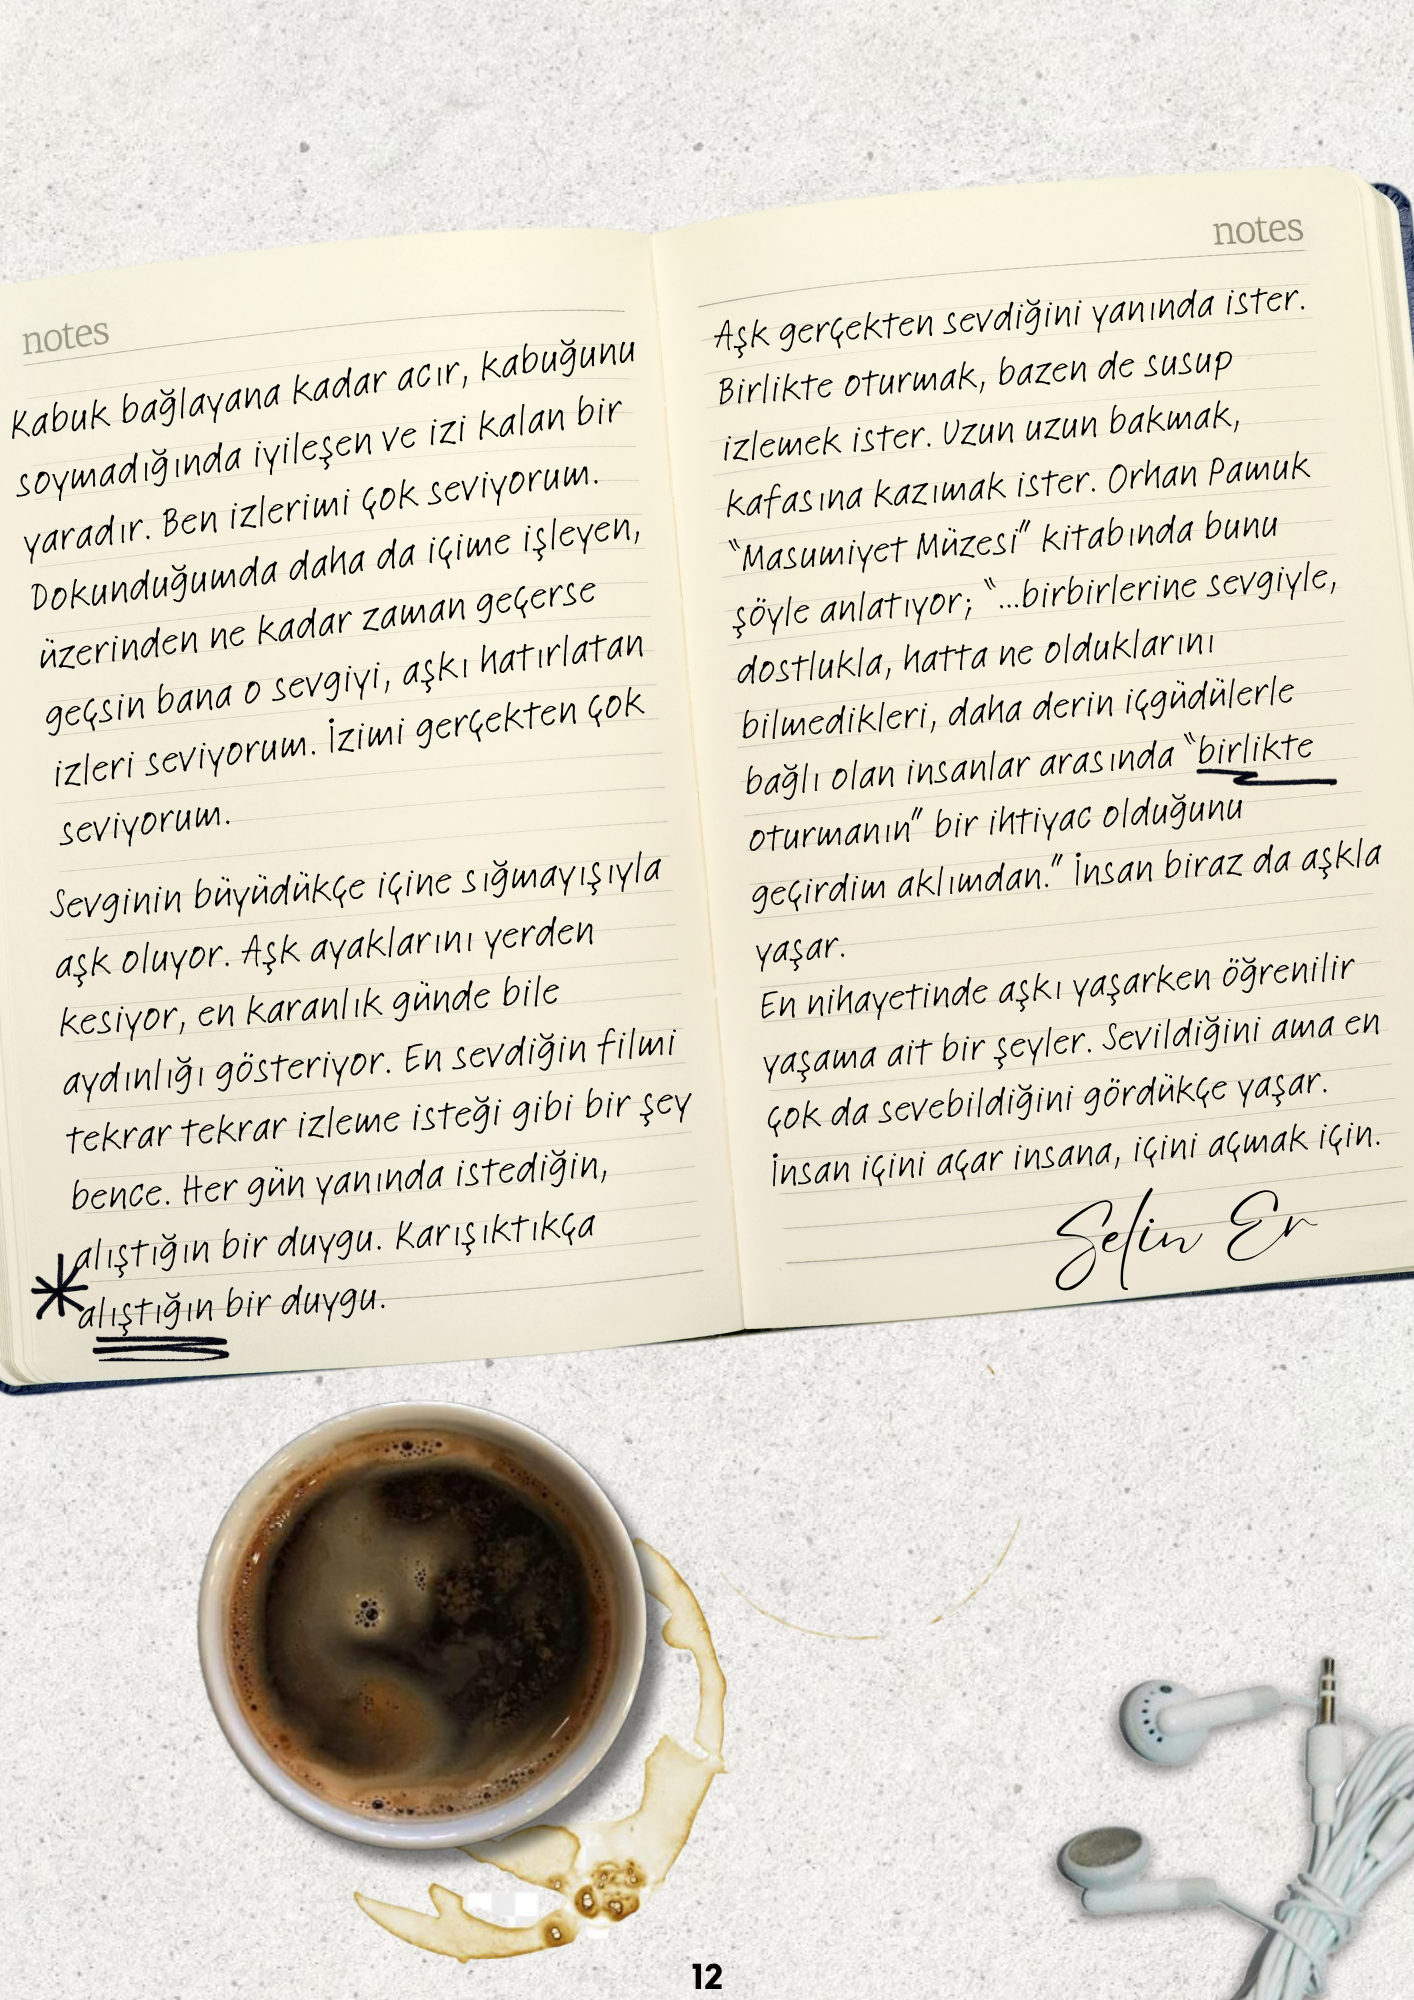 notes
Kabuk bağlayana kadar acır, kabuğunu
soymadığında iyileşen ve izi kalan bir
yaradır. Ben izlerimi çok seviyorum.
Dokunduğumda daha da içime işleyen,
üzerinden ne kadar zaman geçerse
geçsin bana o sevgiyi, aşkı hatırlatan
izleri seviyorum. İzimi gerçekten çok
seviyorum.
Sevginin büyüdükçe içine sığmayışıyla
aşk oluyor. Aşk ayaklarını yerden
kesiyor, en karanlık günde bile
aydınlığı gösteriyor. En sevdiğin filmi
tekrar tekrar izleme isteği gibi bir şey
bence. Her gün yanında istediğin,
alıştığın bir duygu. Karışıktıkça
alıştığın bir duygu.
notes
Aşk gerçekten sevdiğini yanında ister.
Birlikte oturmak, bazen de susup
izlemek ister. Uzun uzun bakmak,
kafasına kazımak ister. Orhan Pamuk
“Masumiyet Müzesi” kitabında bunu
şöyle anlatıyor; “...birbirlerine sevgiyle,
dostlukla, hatta ne olduklarını
bilmedikleri, daha derin içgüdülerle
bağlı olan insanlar arasında “birlikte
oturmanın” bir ihtiyac olduğunu
geçirdim aklımdan.” İnsan biraz da aşkla
yaşar.
En nihayetinde aşkı yaşarken öğrenilir
yaşama ait bir şeyler. Sevildiğini ama en
çok da sevebildiğini gördükçe yaşar.
İnsan içini açar insana, içini açmak için.
Selin Er
12